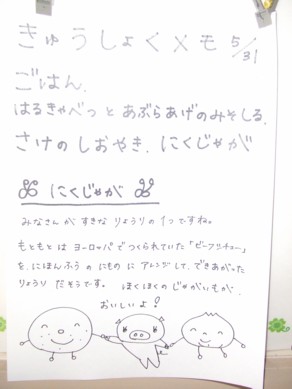 きゅうしょくメモ 5/31
ごはん、
はるきゃべつとあぶらあげのみそしる、
さけのしおやき、にくじゃが
にくじゃが
みなさんがすきなりょうりの1つですね。
もともとはヨーロッパでつくられていた「ビーフシチュー」
を、にほんふうのにものにアレンジして、できあがった
りょうりだそうです。ほくほくのじゃがいもが、
おいしいよ!